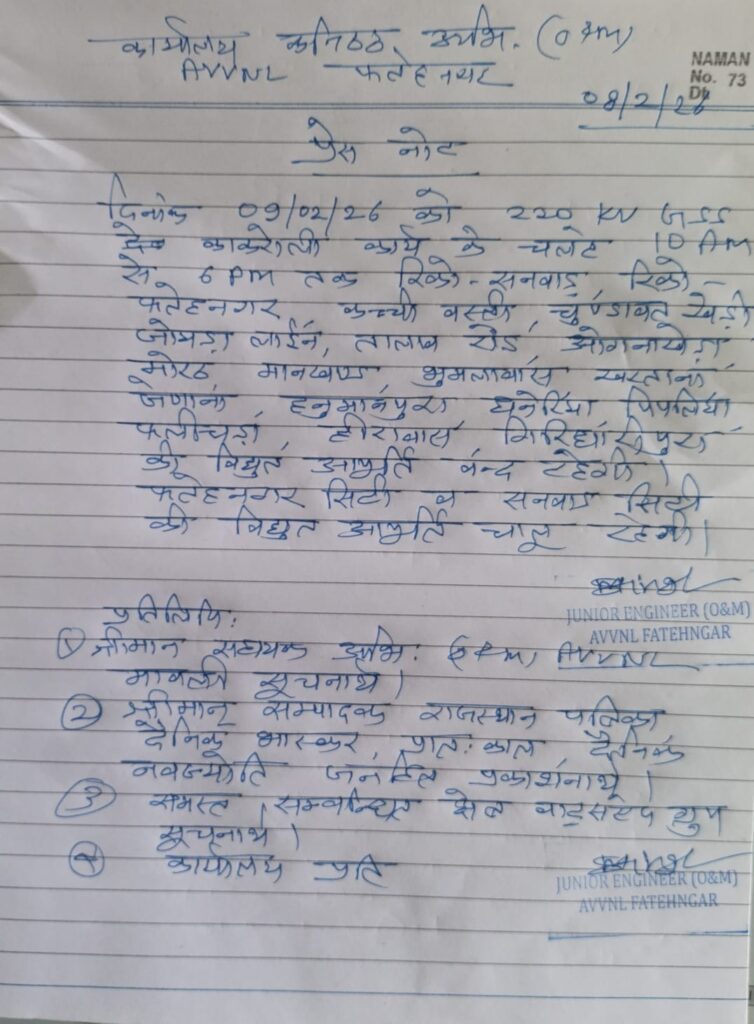 कार्यालय कनिष्ठ अभि. (O&M)
AVVNL फतेहनगर
NAMAN
No. 73
Dt
08/2/26
प्रेस नोट
दिनांक 09/02/26 को 220 KV GSS
कांकरोली कार्य के चलते 10 AM
से 6 PM तक रिको-सनवाड, रिको-
फतेहनगर, कच्ची बस्ती, चुण्डावत खेड़ी
लाईन, तालाब रोड,
मानखण्ड
हनुमानपुरा घनेरिया पिपलिया
फलीचड़ा, हीरावास,
की विद्युत आपूर्ति बन्द रहेगी।
फतेहनगर सिटी व सनवाड सिटी
की विद्युत आपूर्ति चालू रहेगी।
JUNIOR ENGINEER (O&M)
AVVNL FATEHNGAR
प्रतिलिपि:
① श्रीमान सहायक अभि: (O&M) AVVNL
मावली सूचनार्थ।
② श्रीमान् सम्पादक राजस्थान पत्रिका
दैनिक भास्कर, प्रात:काल दैनिक
नवज्योति जनहित प्रकाशनार्थ।
③ समस्त सम्बन्धित वाट्सएप ग्रुप
सूचनार्थ।
④ कार्यालय प्रति
JUNIOR ENGINEER (O&M)
AVVNL FATEHNGAR